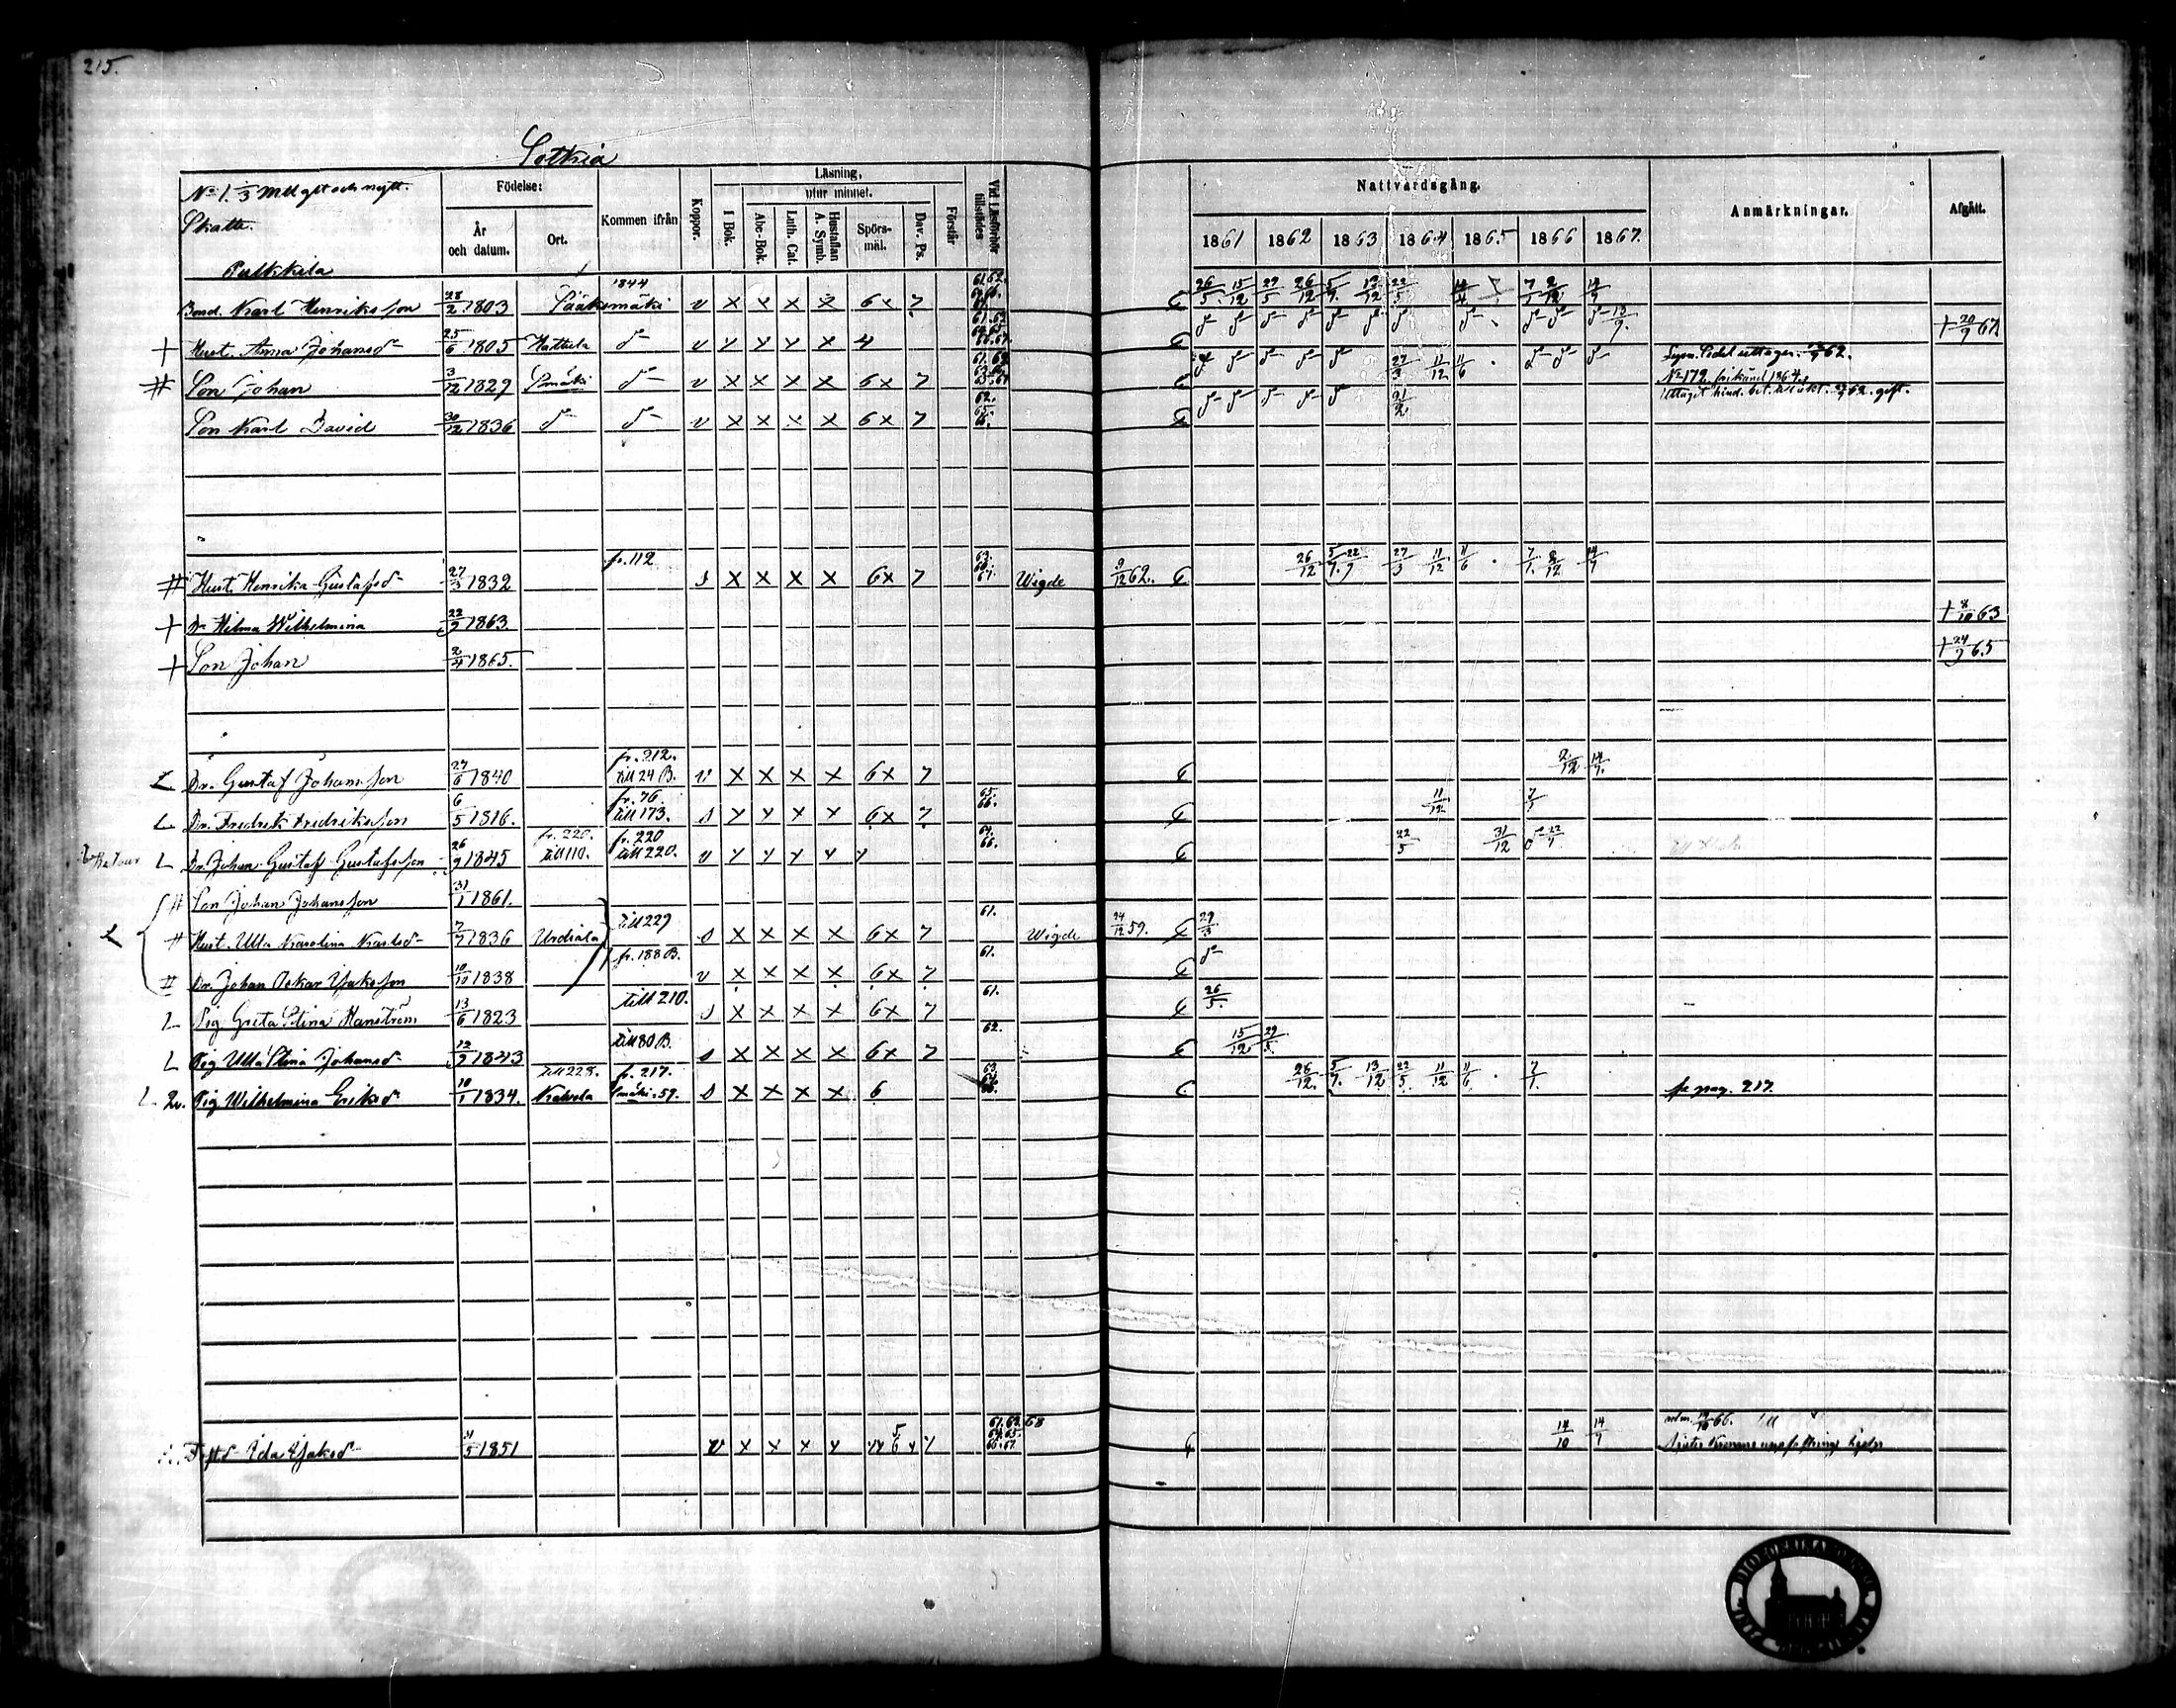 215.
Sotkia
No 1. 1/3 Mtl gl. och nytt.
Skatte.
Pulkkila
Födelse:
År och datum.
Ort.
Kommen ifrån
Koppor.
Läsning,
I Bok.
utur minnet.
Abc-Bok.
Luth. Cat.
Hustaflan A. Symb.
Spörsmål.
Dav. Ps.
Förstår
Vid Läsförhör tillstädes
Nattvardsgång.
1861 1862 1863 1864 1865 1866 1867.
Anmärkningar.
Afgått.
Bond. Karl Henriksson 28/2 1803 Sääksmäki 1844 v x x x x 6x 7 26/5 15/12 29/5 26/12 5/7 13/12 22/5
Hust. Anna Johansd 25/6 1805 Hattula d v 4 † 20/9 67
Son Johan 3/12 1829 Smäki d v x x x x 6x 7 27/3 11/12 11/6
No 172 frikänd 1864
Son Karl David 30/12 1836 d d v x x x x 6x 7 21/2
Hust. Henrika Gustafsd 27/3 1832 fr. 112 s x x x x 6x 7 Wigde 9/12 62. 26/12 5/7 22/9 27/3 11/12 11/6 7/1 2/12 14/7
Dr Hilma Wilhelmina 22/9 1863. † 8/10 63
Son Johan 2/4 1865. † 24/9 65
Dr. Gustaf Johansson 24/6 1840 fr. 212. till 24 B. v x x x x 6x 7 2/12 14/7
Dr. Fredrik Fredriksson 6/5 1816. fr. 76 till 173. s 6x 7 65. 66. 11/12 7/1
Dr. Johan Gustaf Gustafsson 26/9 1845 fr. 220. till 110. fr. 220 till 220. v 64. 66. 22/5 31/12
Son Johan Johansson 31/1 1861.
Hust. Ulla Karolina Karlsd 7/7 1836 Urdiala till 229 s x x x x 6x 7 61. Wigde 24/12 59. 29/3
Dr. Johan Oskar Isaksson 10/10 1838 fr. 188 B. v x x x x 6x 7 61. d
Pig. Greta Stina Hanström 13/6 1823 till 210. s x x x x 6x 7 61. 26/5.
Pig Ulla Stina Johansd 12/9 1843 till 80 B. s x x x x 6x 7 62. 15/12 29/5.
Pig Wilhelmina Eriksd 10/1 1834. till 228. Kalvola fr. 217. Smäki. 59. s x x x x 6 26/12. 5/7. 13/12 22/5. 11/12 11/6 7/1. fr pag. 217.
Ida Isaksd 31/5 1851 v x x x 61. 62. 68 64. 65. 66. 67. 14/10 14/7